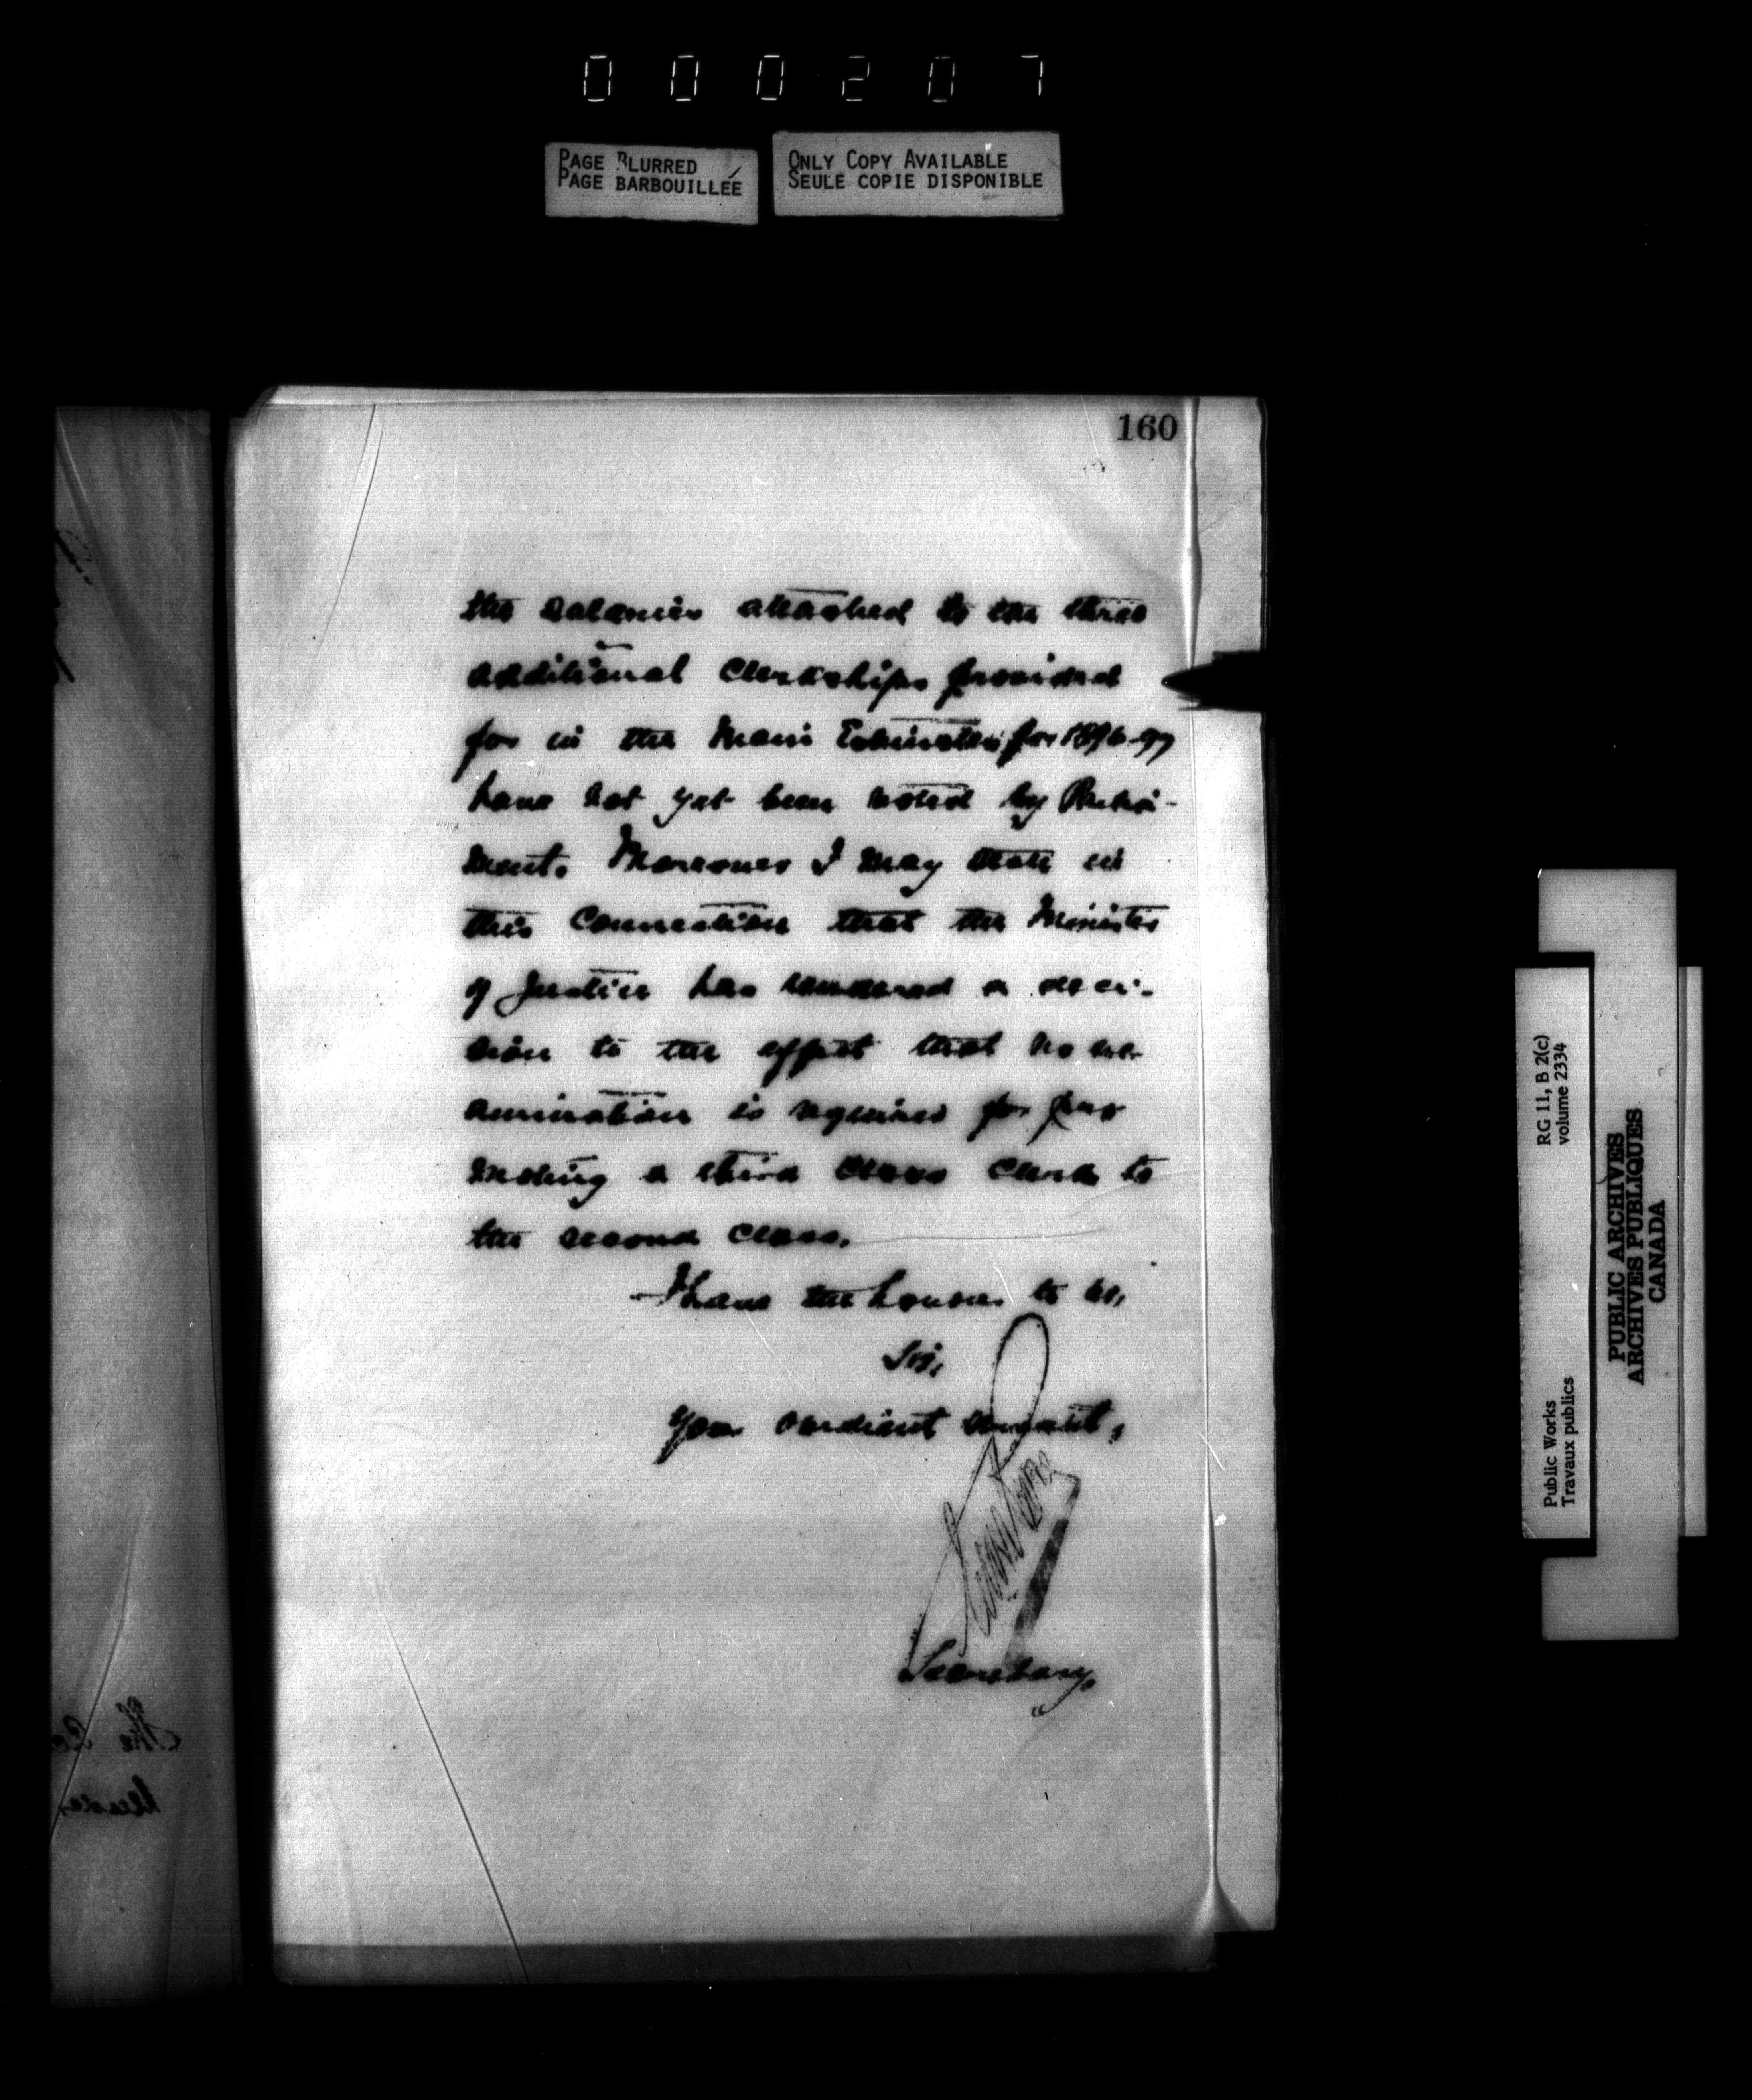 000207
PAGE BLURRED
PAGE BARBOUILLÉE
ONLY COPY AVAILABLE
SEULE COPIE DISPONIBLE
160
the salaries attached to the three
additional Clerkships provided
for in the Main Estimates for 1896-97
have not yet been voted by Parlia-
ment. Moreover I may state in
this Connection that the Minister
of Justice has rendered a deci-
sion to the effect that no ex-
amination is required for pro
moting a third Class Clerk to
the second Class.
I have the honor to be,
Sir,
Your obedient servant,
Secretary.
RG 11, B 2(c)
volume 2334
Public Works
Travaux publics
PUBLIC ARCHIVES
ARCHIVES PUBLIQUES
CANADA